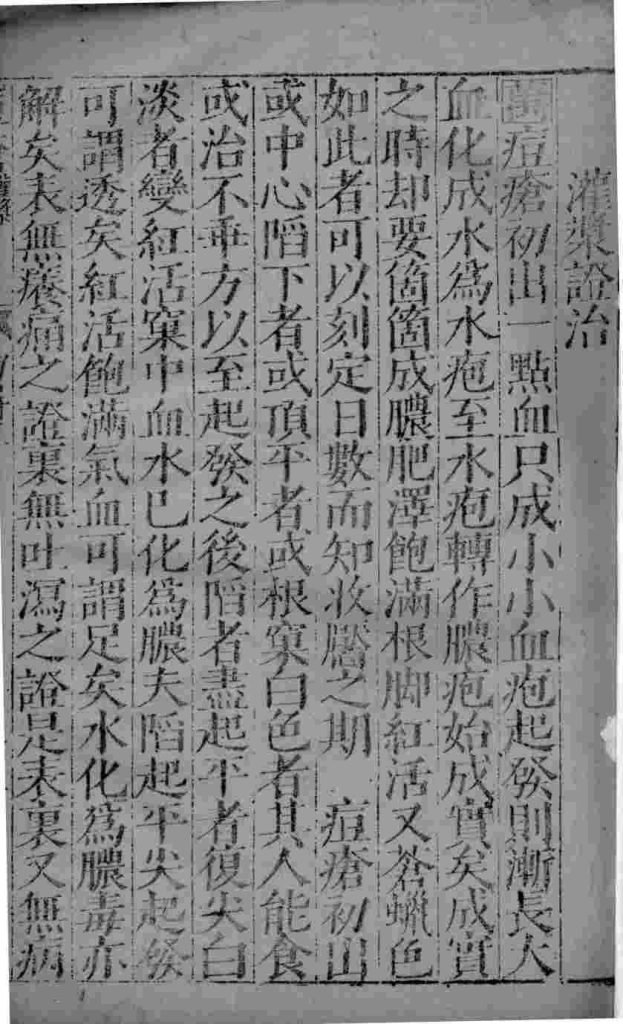 灌漿證治
萬痘瘡初出一點血只成小小血疱起發則漸長大
血化成水爲水疱至水疱轉作膿疱始成實矣成實
之時却要箇箇成膿肥澤飽滿根脚紅活又蒼蠟色
如此者可以刻定日數而知收靨之期 痘瘡初出
或中心陷下者或頂平者或根窠白色者其人能食
或治不乖方以至起發之後陷者盡起平者復尖白
淡者變紅活窠中血水已化爲膿夫陷起平尖起發
可謂透矣紅活飽滿氣血可謂足矣水化爲膿毒亦
解矣表無癢痛之證裏無吐瀉之證是表裏又無病